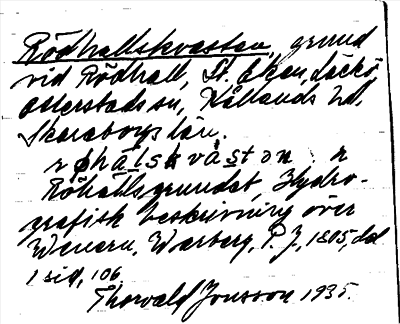 Rödhallskvasten, grund
vid Rödhall, St. Eken, Läckö,
Otterstads sn, Kållands hd,
Skaraborgs län.
Röhallsgrundet, Hydro-
grafisk beskrivning öfver
Wenern, Warberg, P. J, 1805, del
1 sid, 106,
Thorvald Jonsson 1935.